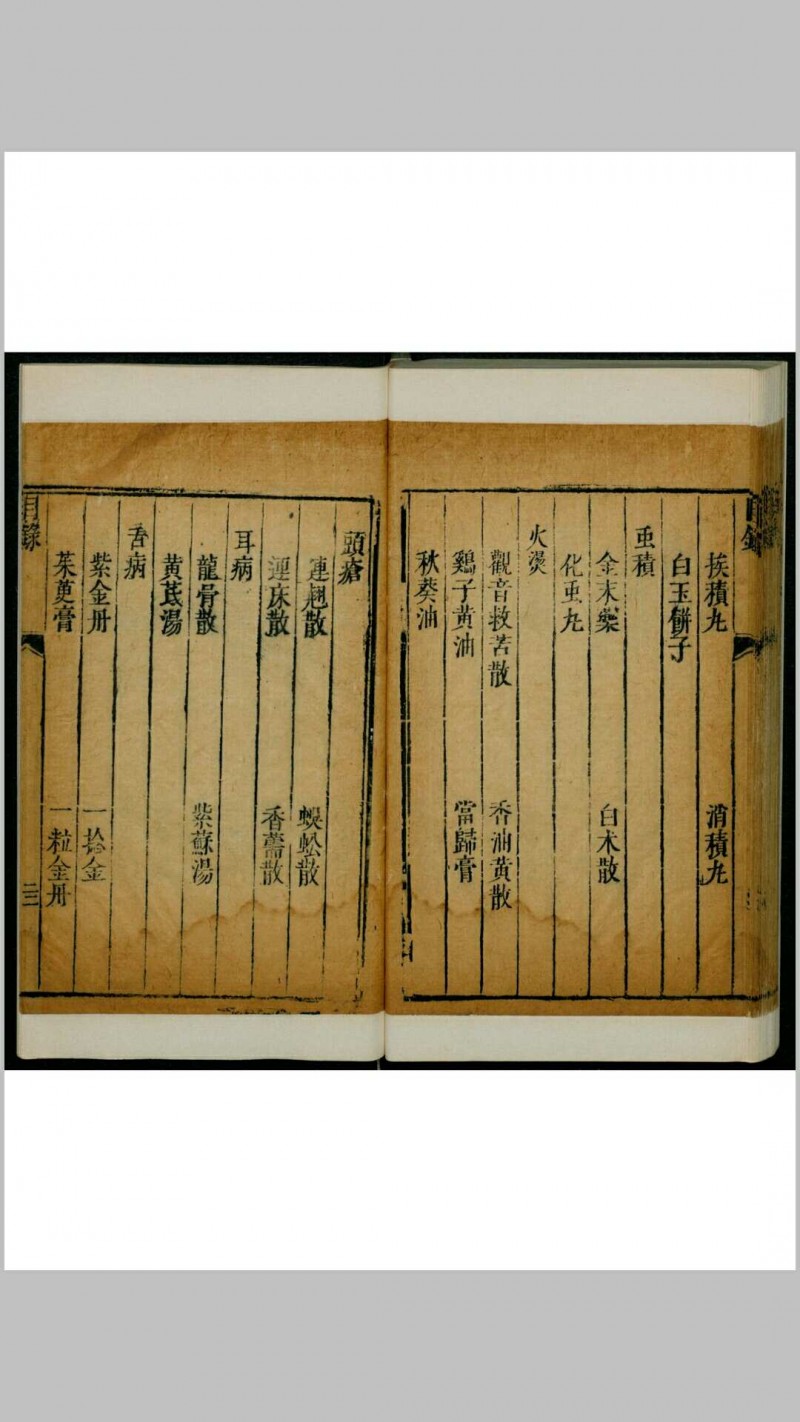 目錄
挨積丸 消積丸
白玉餅子
虫積
金末藥 白术散
化虫丸
火燙
觀音救苦散 香油黃散
鷄子黃油 當歸膏
秋葵油
頭瘡
連翹散 蜈蚣散
連床散 香薷散
耳病
龍骨散 紫蘇湯
黃芪湯
舌病
紫金丹 一捻金
茱萸膏 一粒金丹
目錄
三